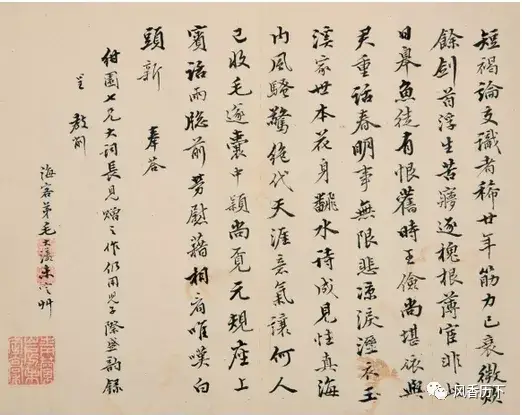 短褐論交識者稀廿年筋力已衰微吷
餘劍首浮生苦夢逐槐根薄宦非此
日臯魚徒有恨舊時王儉尚堪依與
君重話春明事無限悲涼淚溼衣玉
溪家世本花身翻水詩成見性真海
內風騷驚絕代天涯意氣讓何人
已收毛遂囊中穎尚覓元規座上
賓話雨牕前勞慰藉相看唯嘆白
頭新 奉答
付園七兄大詞長見贈之作仍用兒子際盛韵錄
呈 教削
海客弟毛大瀛未定艸
风香历下